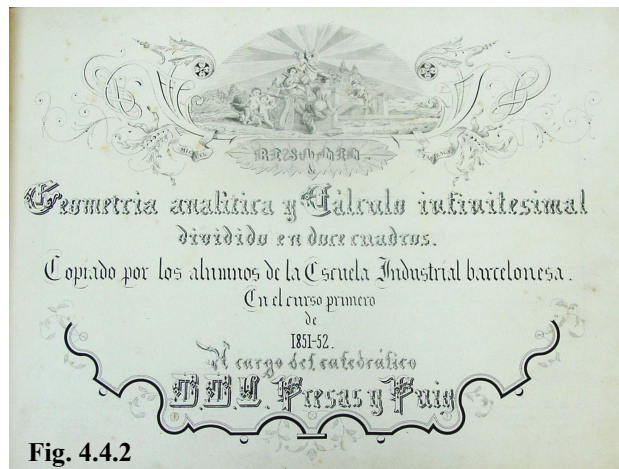 RESUMEN.
Geometria analitica y Cálculo infinitesimal
dividido en doce cuadros.
Copiado por los alumnos de la Escuela Industrial barcelonesa.
En el curso primero
de
1851-52.
A cargo del catedrático
D.D.L. Presas y Puig
Fig. 4.4.2